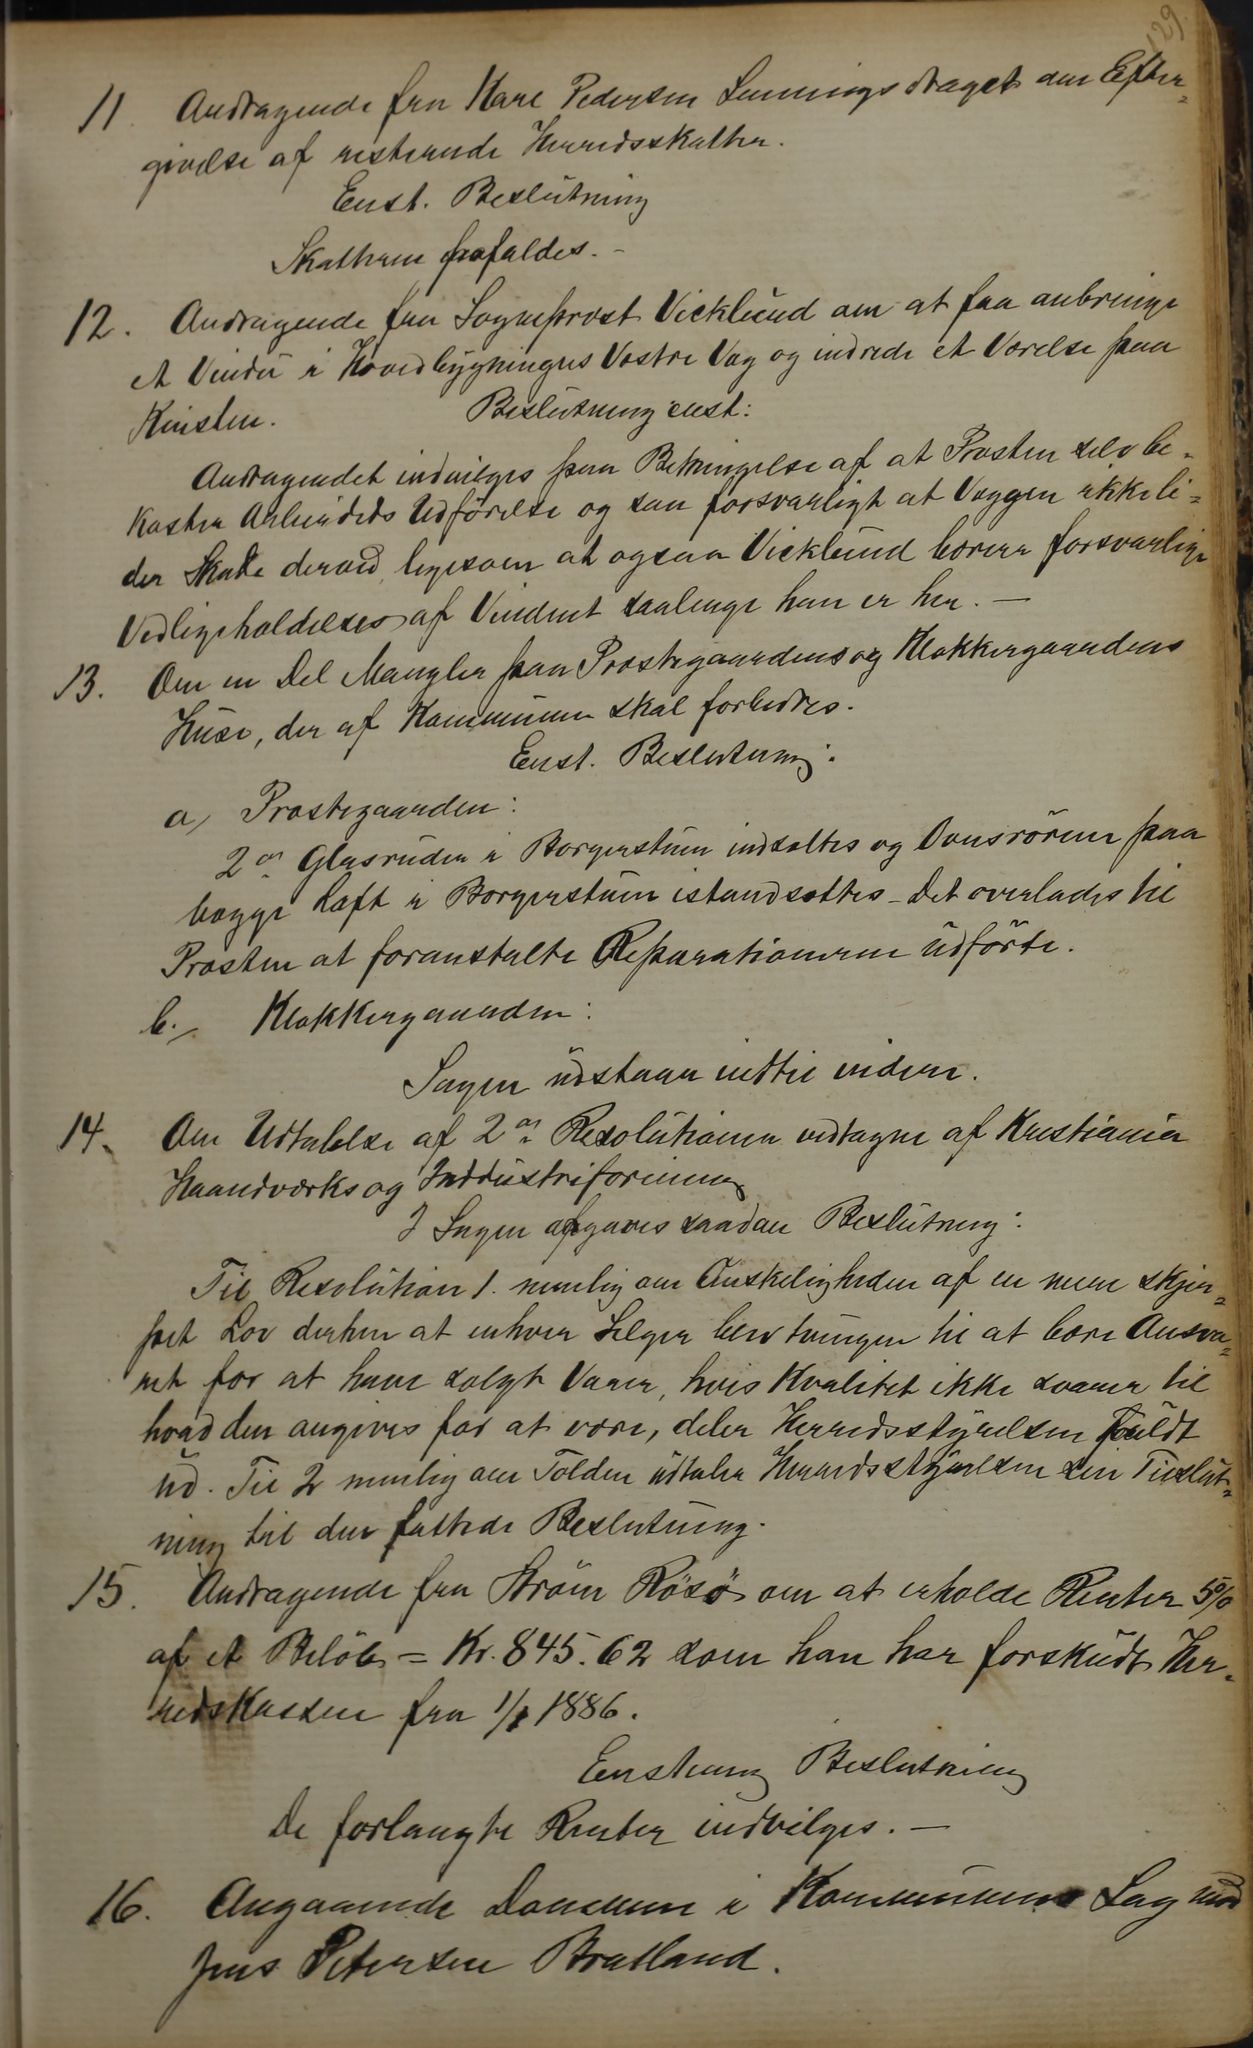 129.
11 Andragende fra Karl Pedersen Lenningsdraget om Efter-
givelse af resterende Herredsskatter.
Enst. Beslutning
Skatterne frafaldes. -
12. Andragende fra Sogneprest Vicklund om at faa anbringe
et Vindu i Hovedbygningens Vestre Væg og indrede et Værelse paa
Kvisten. Beslutning enst:
Andragendet indvilges paa Betingelse af at Presten selv be-
koster Arbeidets Udførelse og saa forsvarligt at Væggen ikke li-
der Skade derved, ligesom at ogsaa Vicklund bærer forsvarlige
Vedligeholdelses af Vinduet saalenge han er her. -
13. Om en Del Mangler paa Prestegaardens og Klokkergaardens
Huse, der af Kommunen skal forbedres.
Enst. Beslutning:
a, Prestegaarden:
2de Glasruder i Borgerstuen indsættes og Ovnsrørene paa
begge Loft i Borgerstuen istandsættes - Det overlades til
Presten at foranstalte Reparationerne udførte.
b. Klokkergaarden:
Sagen udstaar indtil videre.
14. Om Udtalelse af 2de Resolutioner vedtagne af Kristiania
Haandverks og Industriforening
I Sagen afgaves saadan Beslutning:
Til Resolution 1. nemlig om Ønskeligheden af en mere skjer-
pet Lov derhen at enhver Selger blev tvungen til at bære Ansva-
ret for at have solgt Varer, hvis Kvalitet ikke svarer til
hvad den angives for at være, deler Herredsstyrelsen fuldt
ud. Til 2 nemlig om Tolden udtaler Herredsstyrelsen sin Tilslut-
ning til den fattede Beslutning.
15. Andragende fra Strøm Røsø om at erholde Renter 5%
af et Beløb = Kr. 845.62 som han har forskudt Her-
redskassen fra 1/1 1886.
Enstemmig Beslutning
De forlangte Renter indvilges. -
16. Angaaende Dommen i Kommunens Sag mod
Jens Petersen Bratland.